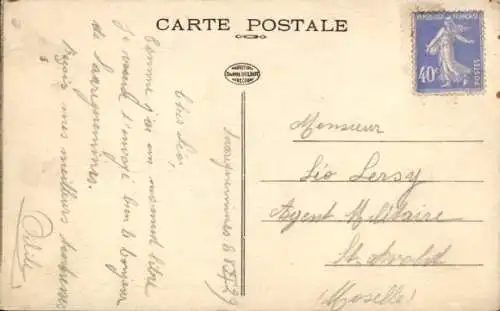 CARTE POSTALE
REPUBLIQUE FRANÇAISE
40c
POSTES
Sarreguemines 8
Cher Léo,
Comme j'ai un moment libre
Je t'envoi bien le bonjour
de Sarreguemines.
Reçois mes meilleurs
Monsieur
Léo Lersy
Agent Militaire
St. Avold
(Moselle)